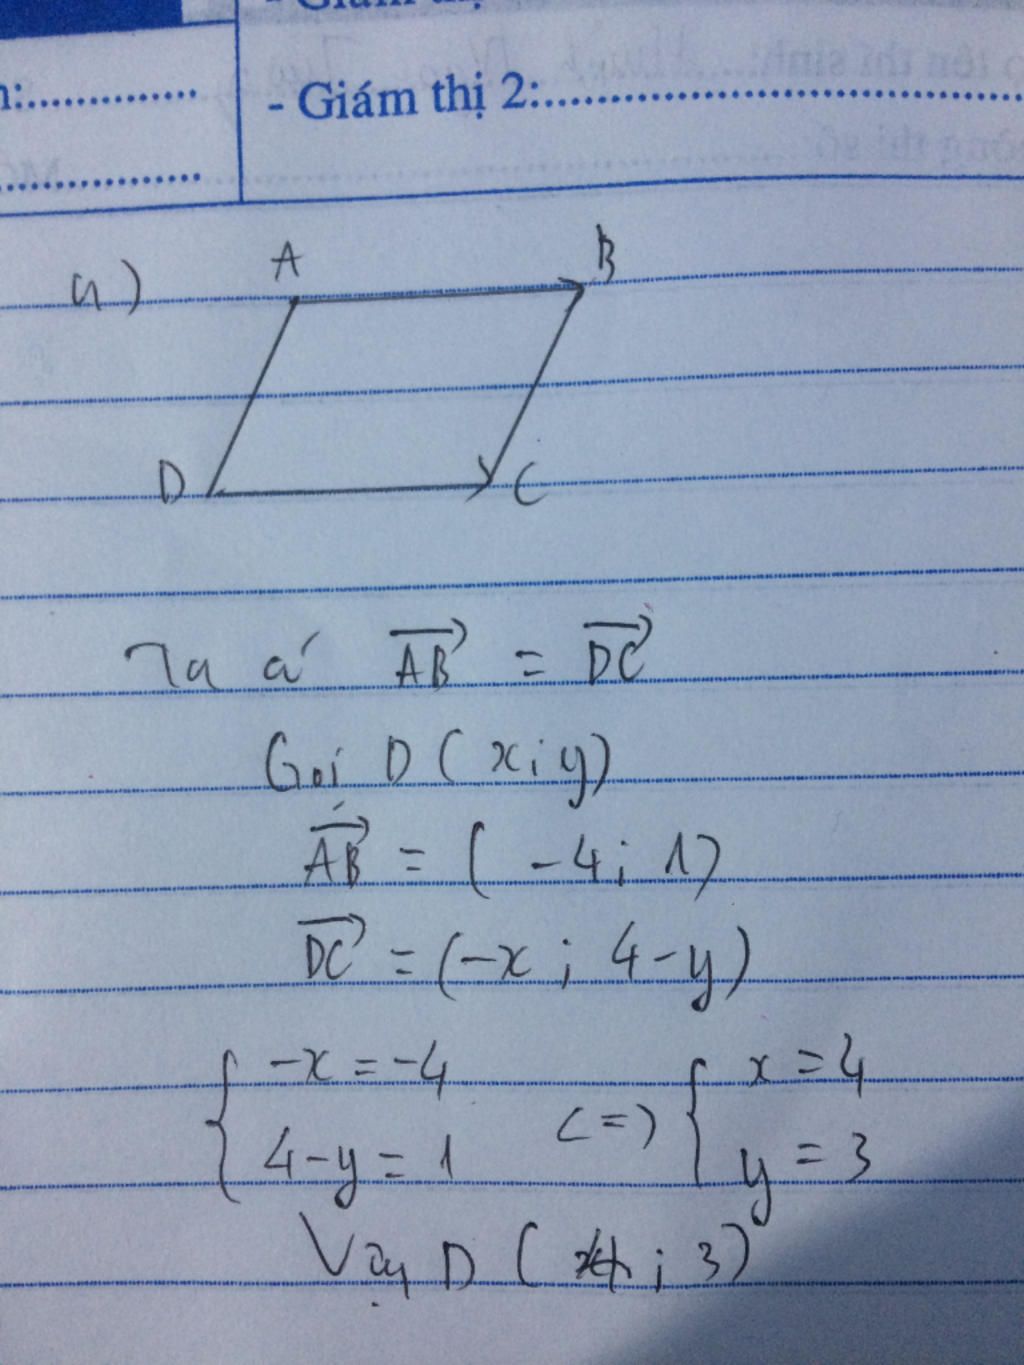 - Giám thị
- Giám thị 2:
a)
A B
D C
Ta có $\overrightarrow{AB} = \overrightarrow{DC}$
Gọi D (x; y)
$\overrightarrow{AB}$ = (-4; 1)
$\overrightarrow{DC}$ = (-x; 4-y)
{ -x = -4 <=> { x = 4
4-y = 1 y = 3
Vậy D (4; 3)